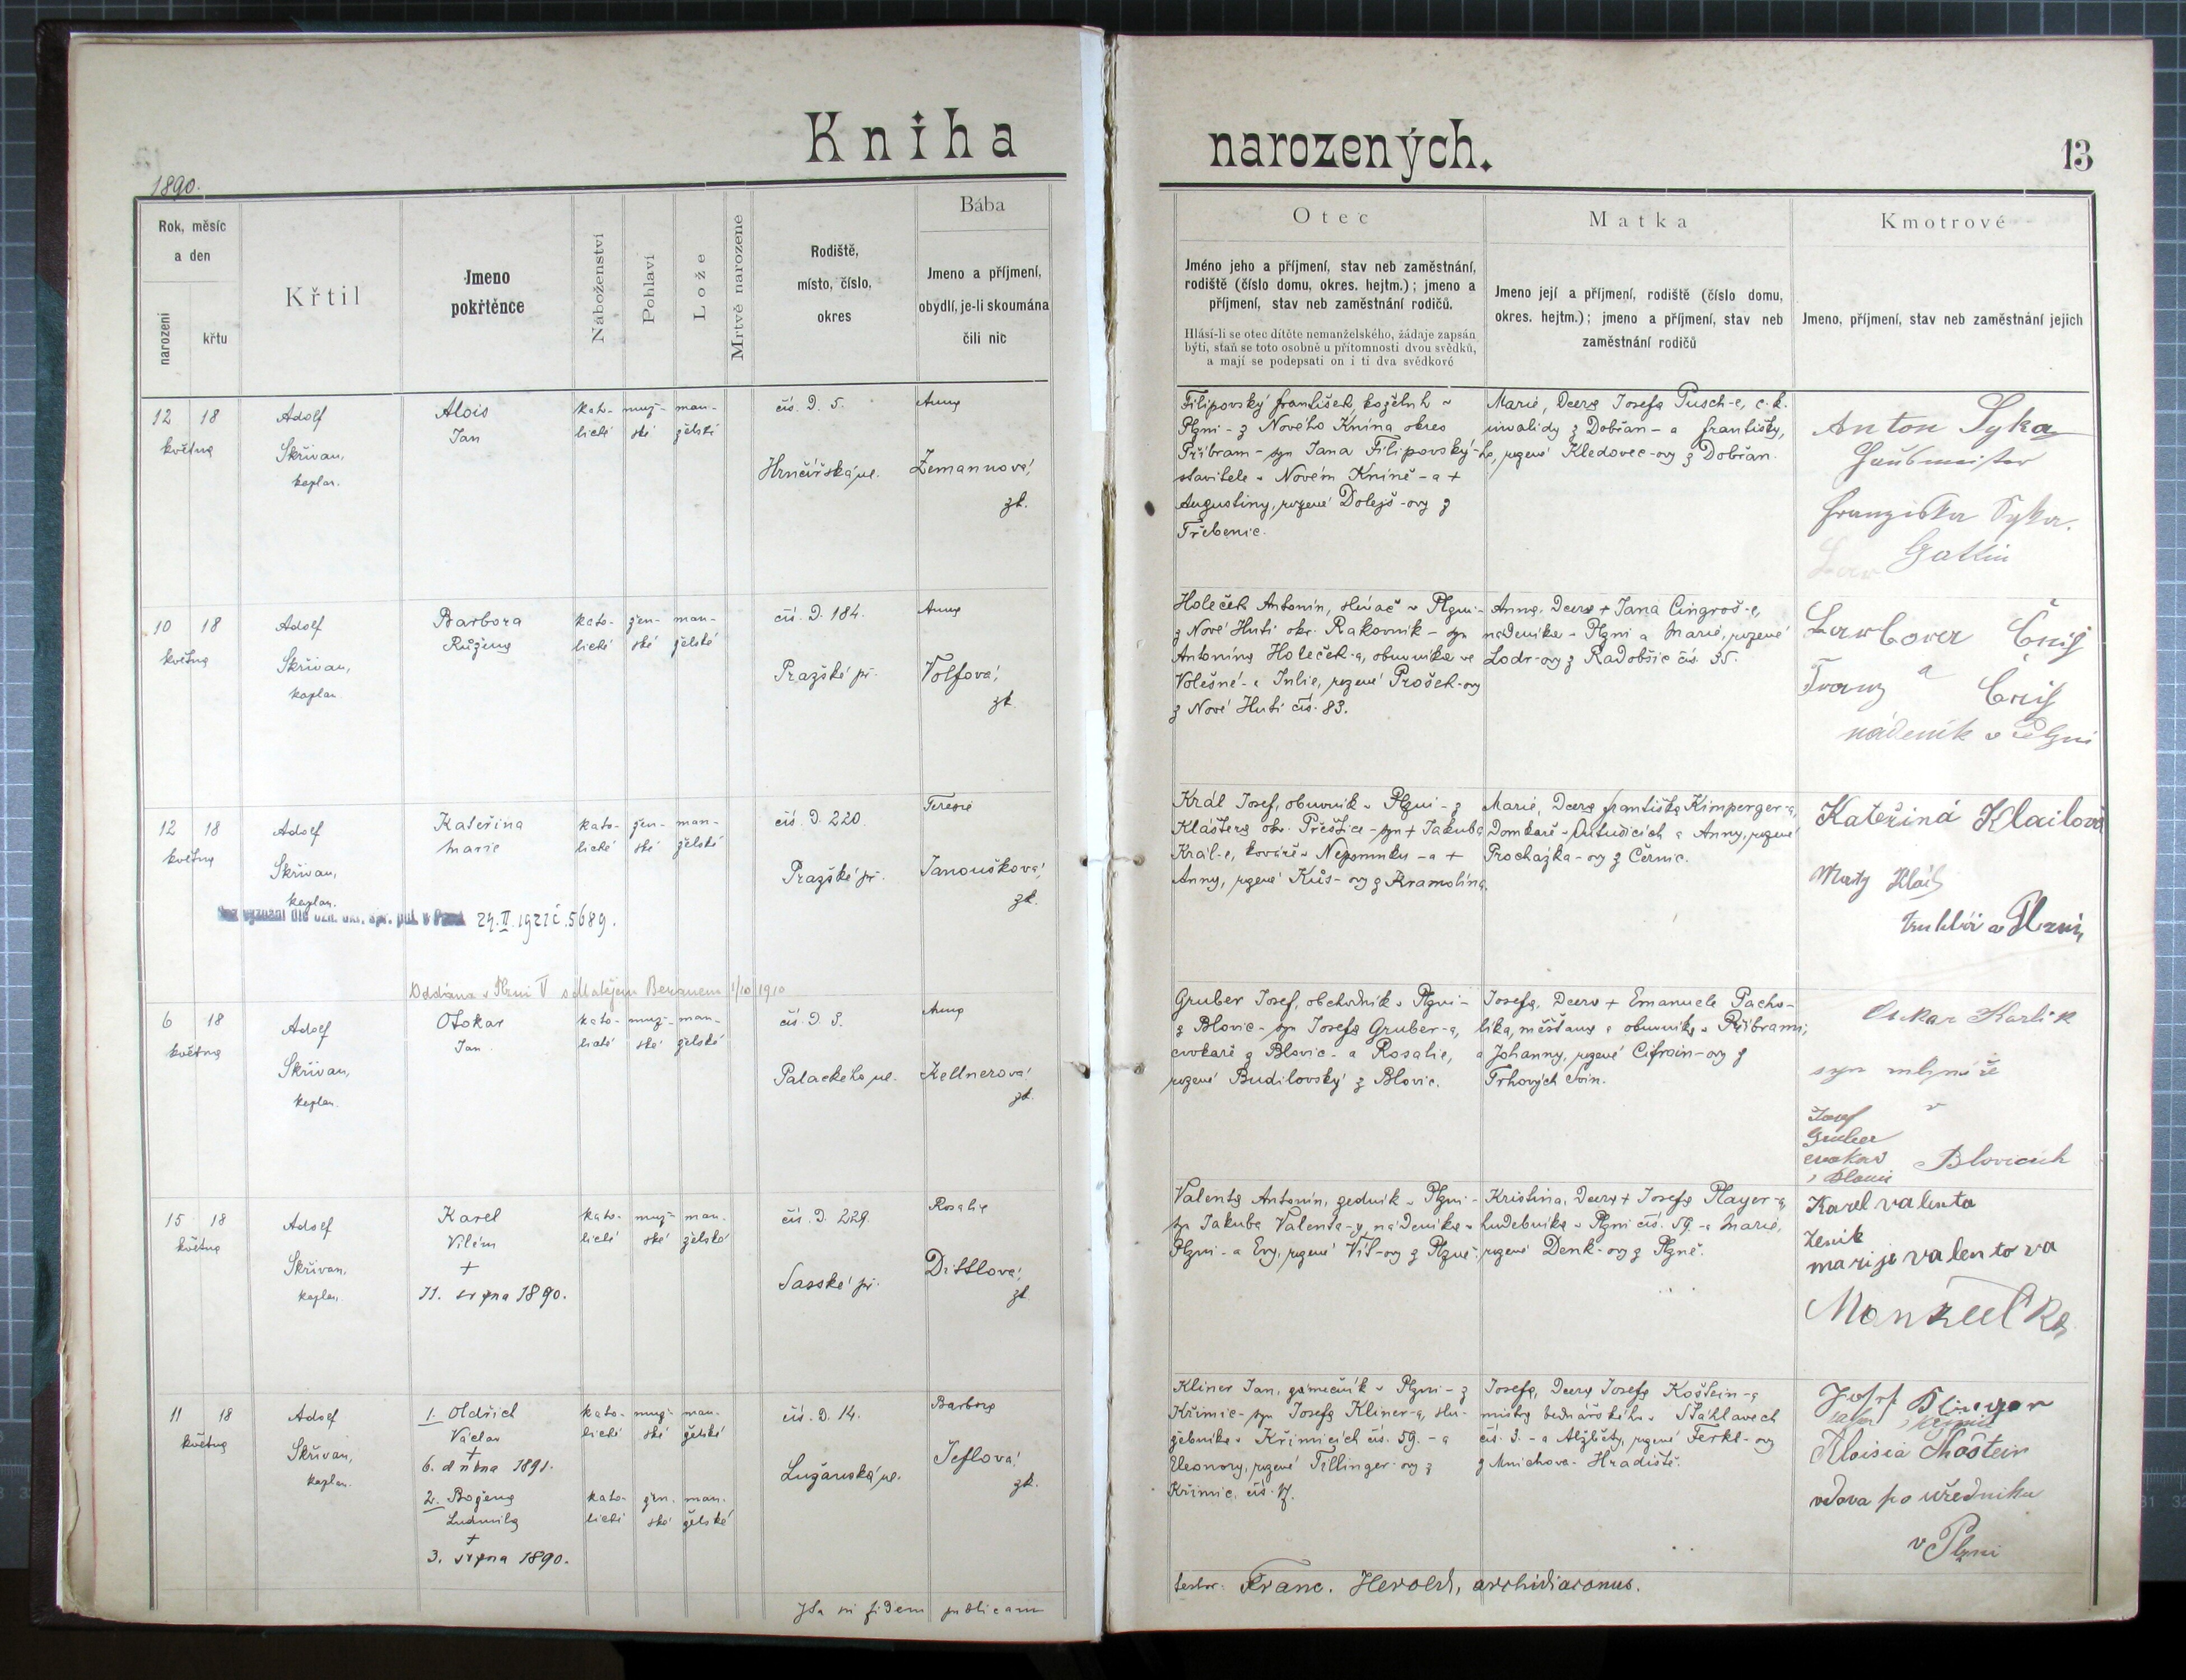 Kniha
narozených.
13
1890.
Rok, měsíc
a den
narození
křtu
Křtil
Jmeno
pokřtěnce
Náboženství
Pohlaví
Lože
Mrtvě narozené
Rodiště,
místo, číslo,
okres
Bába
Jmeno a příjmení,
obydlí, je-li skoumána
čili nic
Otec
Jméno jeho a příjmení, stav neb zaměstnání,
rodiště (číslo domu, okres. hejtm.); jmeno a
příjmení, stav neb zaměstnání rodičů.
Hlásí-li se otec dítěte nemanželského, žádaje zapsán
býti, staň se toto osobně u přítomnosti dvou svědků,
a mají se podepsati on i ti dva svědkové
Matka
Jmeno její a příjmení, rodiště (číslo domu,
okres. hejtm.); jmeno a příjmení, stav neb
zaměstnání rodičů
Kmotrové
Jmeno, příjmení, stav neb zaměstnání jejich
12 18
května
Adolf
Skřivan,
kaplan.
Alois
Jan
kato-
lické
muž-
ské
man-
želské
čís. D. 5.
Hrnčířská ul.
Anna
Zemannová,
zk.
Filipovský František, koželuh v
Plzni - z Nového Knína okres
Příbram - syn Jana Filipovský-ho,
stavitele v Novém Kníně - a +
Augustiny, rozené Dolejš-ovy z
Třebenic.
Marie, dcera Josefa Pusch-e, c. k.
invalidy z Dobřan - a Františky,
rozené Kledovec-ovy z Dobřan.
Anton Syka
Franziska Syka.
Gattin
10 18
května
Adolf
Skřivan,
kaplan
Barbora
Růžena
kato-
lické
žen-
ské
man-
želské
čís. D. 184.
Pražské př.
Anna
Volfová,
zk.
Holeček Antonín, slévač v Plzni -
z Nové Huti okr. Rakovník - syn
Antonína Holeček-a, obuvníka ve
Volešné - a Julie, rozené Prošek-ovy
z Nové Huti čís. 83.
Anna, dcera + Jana Cingroš-e,
nádeníka v Plzni a Marie, rozené
Lodr-ovy z Radobšic čís. 35.
Franz
a
nádeník v Plzni
12 18
května
Adolf
Skřivan,
kaplan.
Kateřina
Marie
kato-
lické
žen-
ské
man-
želské
čís. D. 220.
Pražské př.
Terezie
Janoušková,
zk.
Král Josef, obuvník v Plzni - z
Kláštera okr. Přeštice - syn + Jakuba
Král-e, kováře v Nepomuku - a +
Anny, rozené Kůs-ovy z Kramolína.
Marie, dcera Františka Kimperger-a,
Domkáře v Outušicích a Anny, rozené
Prochazka-ovy z Černic.
Kateřiná Klailová
truhlář v Plzni
24. II. 1921 č. 5689.
Oddána v Plzni V s Matějem Beranem 1/10 1910
6 18
května
Adolf
Skřivan,
kaplan.
Otokar
Jan
kato-
lické
muž-
ské
man-
želské
čís. D. 3.
Palackého ul.
Anna
Kellnerová,
zk.
Gruber Josef, obchodník v Plzni -
z Blovic - syn Josefa Gruber-a,
cvokaře z Blovic - a Rosalie,
rozené Budilovský z Blovic.
Josefa, dcera + Emanuele Pacho-
líka, měšťana a obuvníka v Příbrami,
a Johanny, rozené Cifroin-ovy z
Trhových Svin.
Oskar Karlik
syn mlynáře
v
Blovicích
Josef
Gruber
cvokař
15 18
května
Adolf
Skřivan,
kaplan.
Karel
Vilém
+
11. srpna 1890.
kato-
lické
muž-
ské
man-
želské
čís. D. 229.
Saské př.
Rosalie
Dittlová,
zk.
Valenta Antonín, zedník v Plzni -
syn Jakuba Valenta-y, nádeníka v
Plzni - a Evy, rozené Vít-ovy z Plzně.
Kristina, dcera + Josefa Player-a,
hudebníka v Plzni čís. 59. - a Marie,
rozené Denk-ovy z Plzně.
Karel valenta
marije valentova
11 18
května
Adolf
Skřivan,
kaplan.
1. Oldřich
Václav
+
6. dubna 1891.
2. Božena
Ludmila
+
3. srpna 1890.
kato-
lické
muž-
ské
man-
želské
kato-
lické
žen-
ské
man-
želské
čís. D. 14.
Lužanská ul.
Barbora
Teflová,
zk.
Kliner Jan, zámečník v Plzni - z
Křimic - syn Josefa Kliner-a, slu-
žebníka v Křimicích čís. 59. - a
Eleonory, rozené Tillinger-ovy z
Křimic, čís. 17.
Josefa, dcera Josefa Koštein-a
mistra bednářského v Stáhlavech
čís. 3. - a Alžběty, rozené Ferkl-ovy
z Mnichova-Hradiště.
Aloisia Koštein
vdova po úředníku
v Plzni
Ita in fidem publicam
testor: Franc. Herold, archidiaconus.